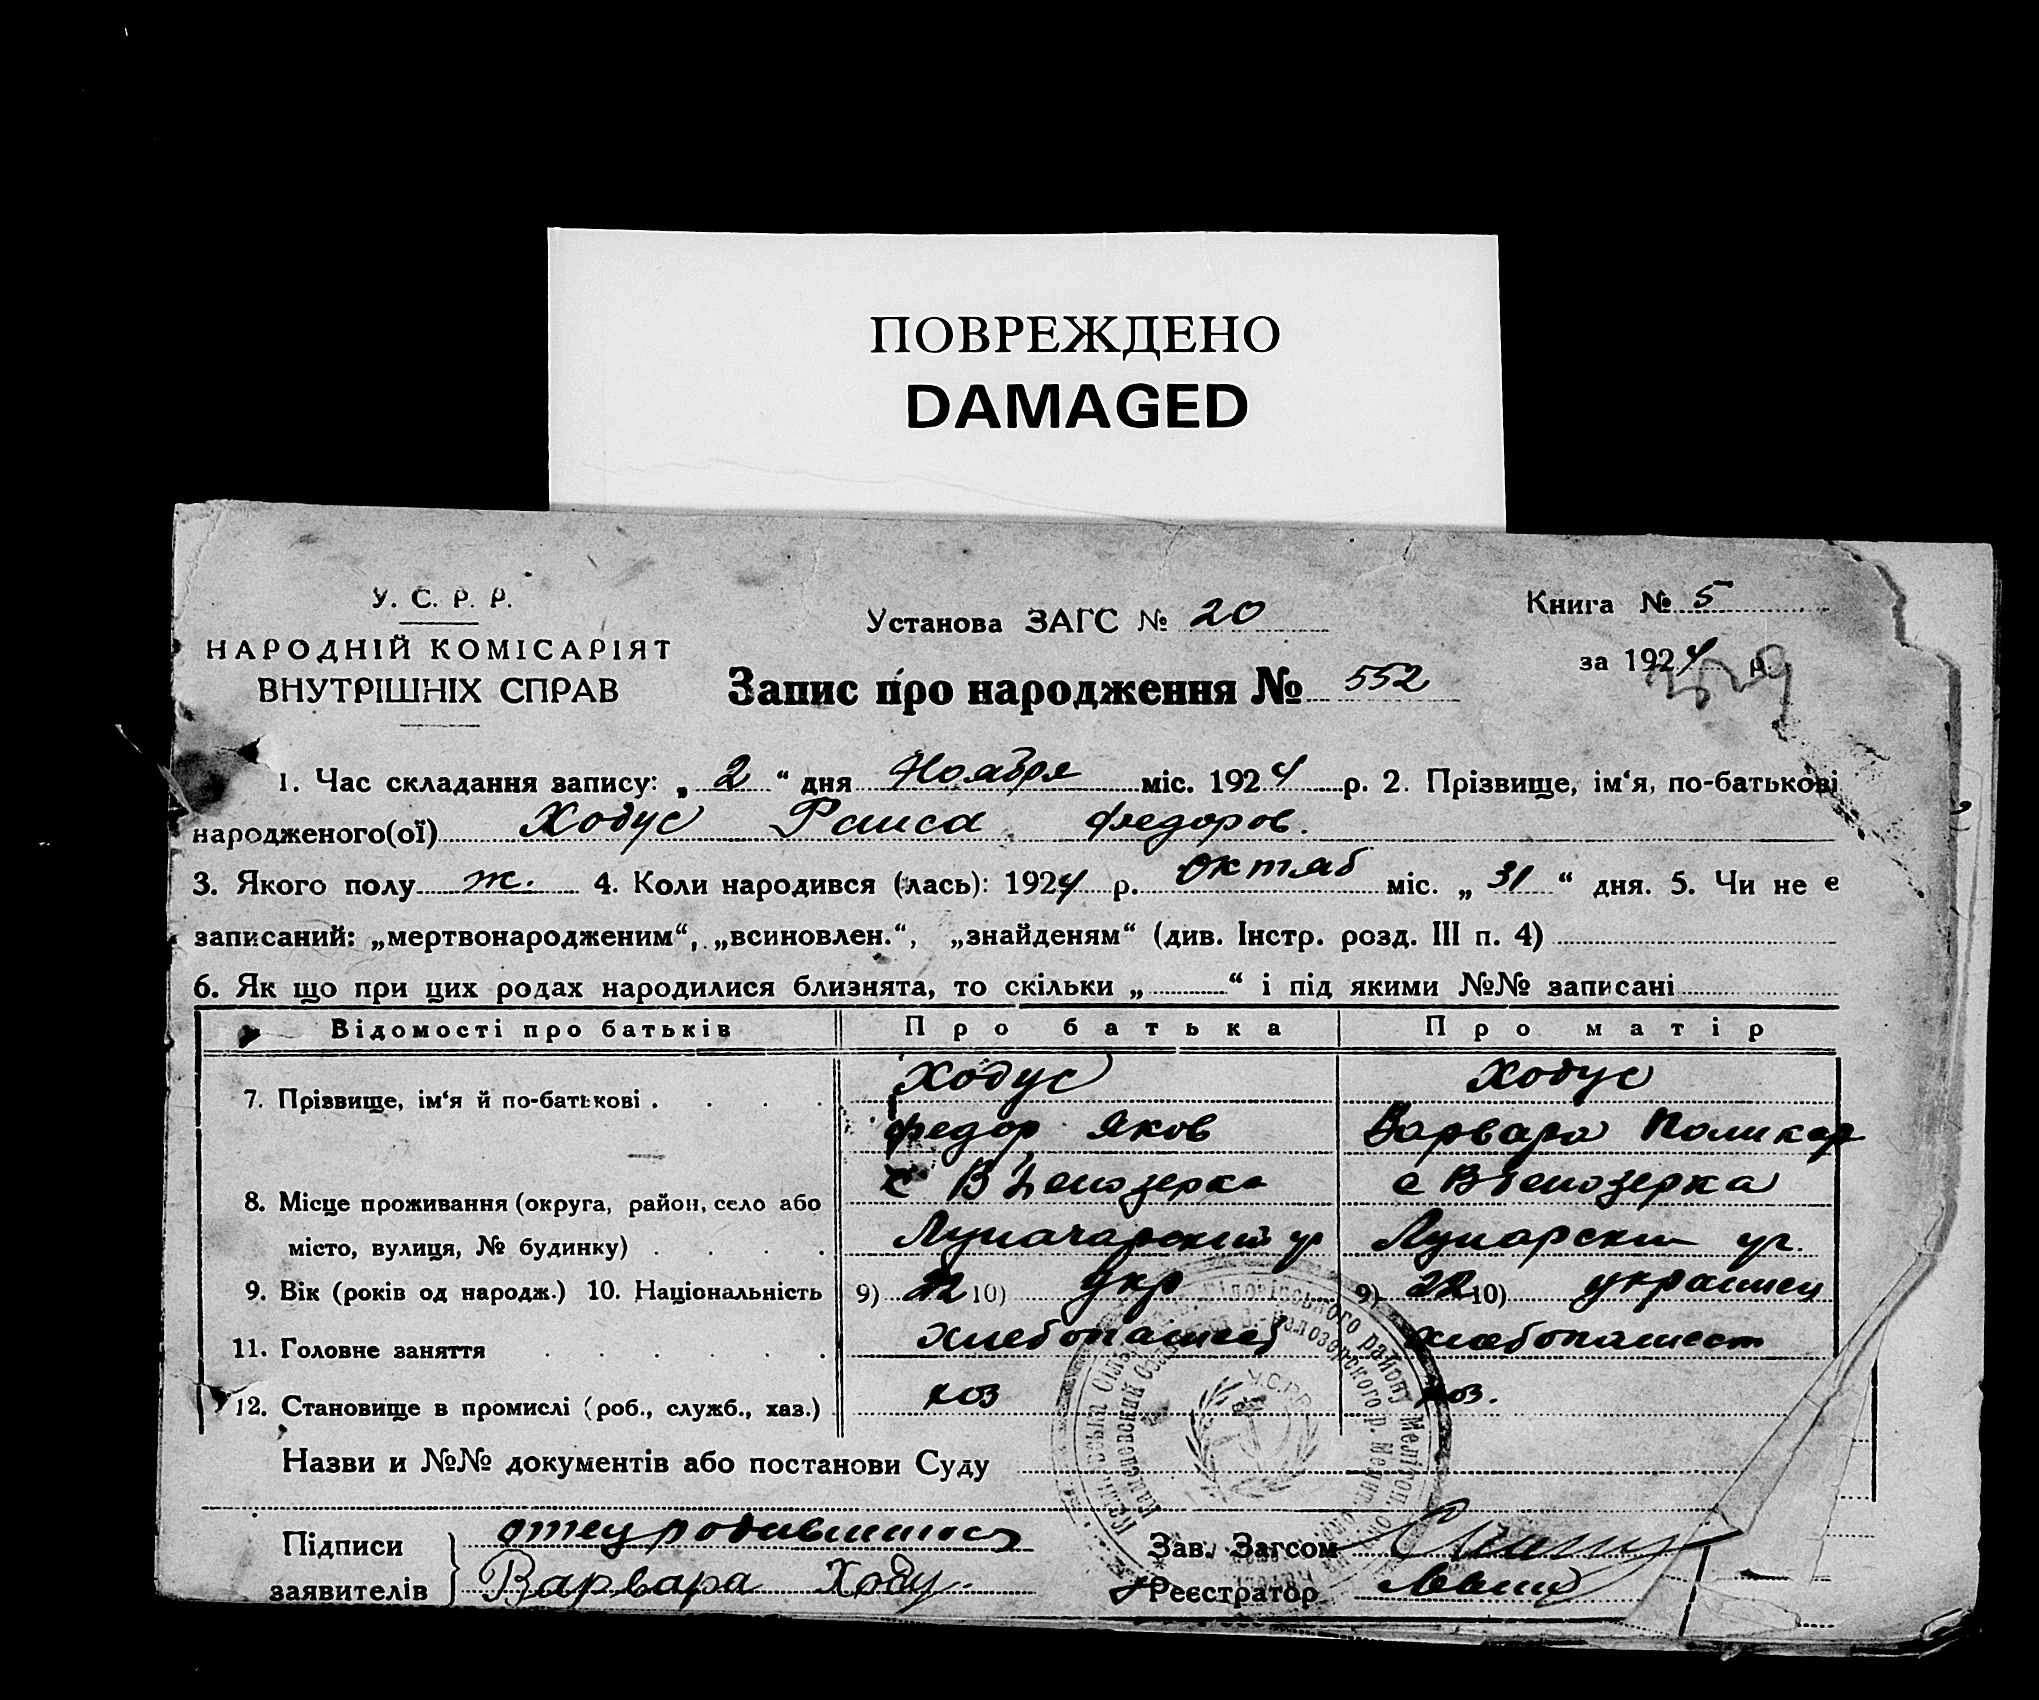 ПОВРЕЖДЕНО
DAMAGED
У. С. Р. Р.
НАРОДНІЙ КОМІСАРІЯТ
ВНУТРІШНІХ СПРАВ
Установа ЗАГС № 20
Книга № 5
за 1924 р.
Запис про народження № 552
1. Час складання запису: „ 2 “ дня Ноября міс. 1924 р. 2. Прізвище, ім‘я, по-батькові
народженого(ої) Ходус Раиса Федоров.
3. Якого полу ж. 4. Коли народився (лась): 1924 р. Октяб міс. „ 31 “ дня. 5. Чи не є
записаний: „мертвонародженим“, „всиновлен.“, „знайденям“ (див. Інстр. розд. III п. 4)
6. Як що при цих родах народилися близнята, то скільки „ “ і під якими №№ записані
Відомості про батьків Про батька Про матір
7. Прізвище, ім‘я й по-батькові . . . . Ходус Ходус
Федор Яков Варвара Поликар
8. Місце проживання (округа, район, село або с В Белозерка с В Белозерка
місто, вулиця, № будинку) . . . . Луначарский ур Лунарский ул.
9. Вік (років од народж.) 10. Національність 9) 22 10) укр 9) 22 10) украинец
11. Головне заняття . . . . . . хлебопашец хлебопашест
12. Становище в промислі (роб., служб., хаз.) хоз хоз.
Назви и №№ документів або постанови Суду
У.С.Р.Р.
Підписи
заявителів
отец родившегося
Варвара Ходу.
Зав. Загсом
Реєстратор